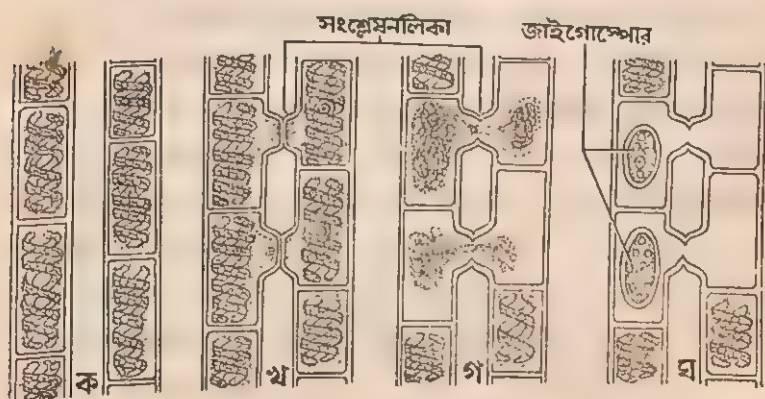 সংশ্লেষনলিকা
জাইগোস্পোর
ক
খ
গ
ঘ